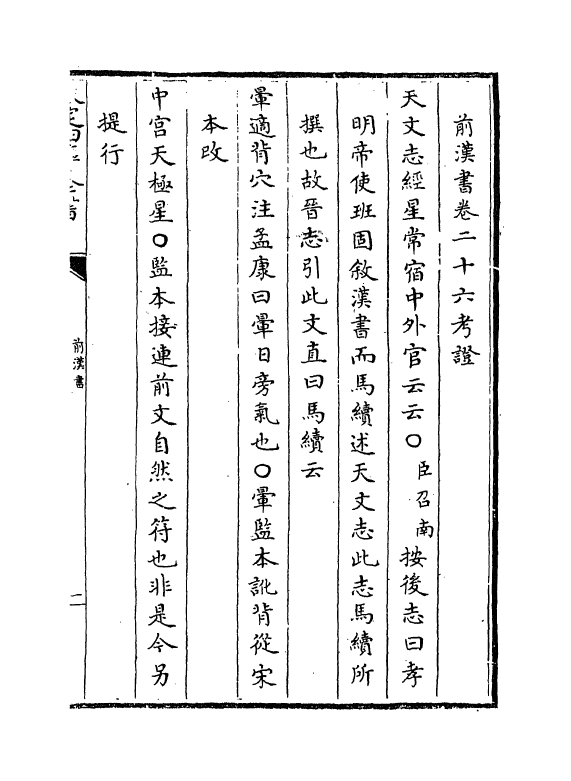 前漢書卷二十六考證
天文志經星常宿中外官云云〇臣召南按後志曰孝
明帝使班固敘漢書而馬續述天文志此志馬續所
撰也故晉志引此文直曰馬續云
暈適背穴注孟康曰暈日旁氣也〇暈監本訛背從宋
本改
中宮天極星〇監本接連前文自然之符也非是今另
提行
前漢書
二